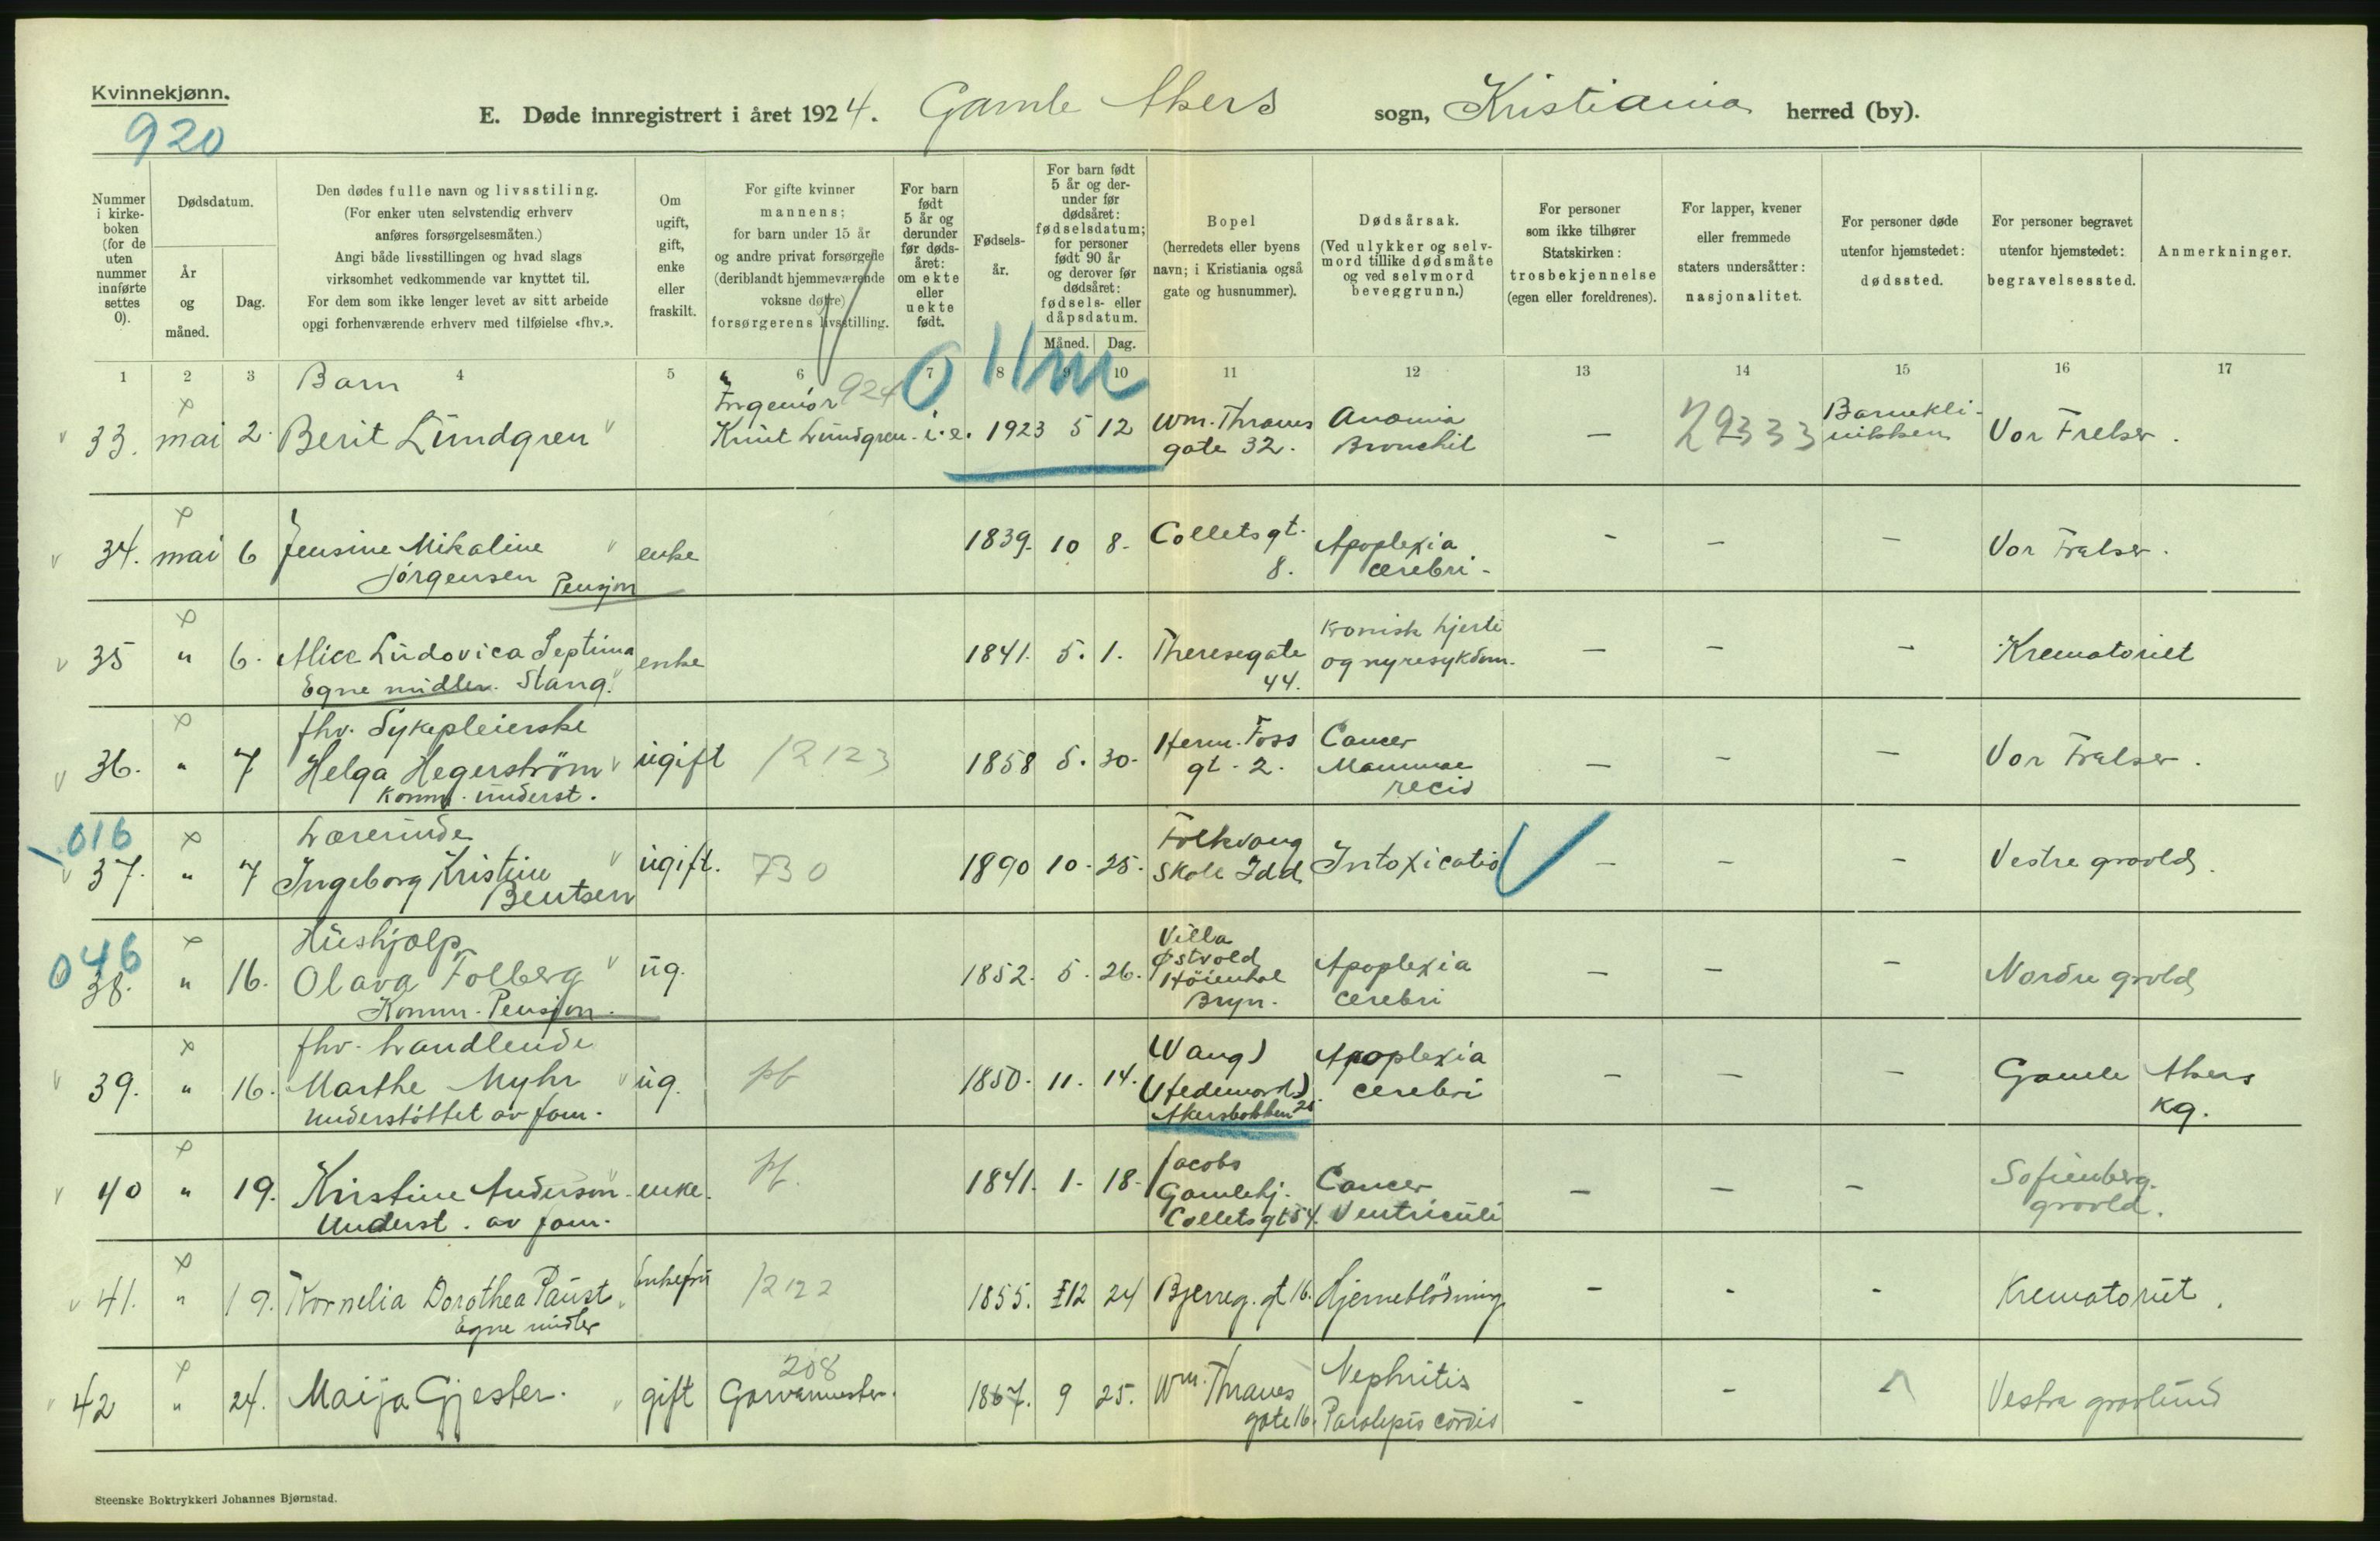 Kvinnekjønn.
920
E. Døde innregistrert i året 1924. Gamle Akers sogn, Kristiania herred (by).
Nummer i kirke-boken (for de uten nummer innførte settes 0).
Dødsdatum.
År og måned.
Dag.
Den dødes fulle navn og livsstiling.
(For enker uten selvstendig erhverv
anføres forsørgelsesmåten.)
Angi både livsstillingen og hvad slags
virksomhet vedkommende var knyttet til.
For dem som ikke lenger levet av sitt arbeide
opgi forhenværende erhverv med tilføielse «fhv.».
Om ugift, gift, enke eller fraskilt.
For gifte kvinner
mannens;
for barn under 15 år
og andre privat forsørgede
(deriblandt hjemmeværende
voksne døtre)
forsørgerens livsstilling.
For barn født 5 år og derunder før døds-året: om ekte eller uekte født.
Fødsels-år.
For barn født 5 år og der-under før dødsåret: fødselsdatum; for personer født 90 år og derover før dødsåret: fødsels- eller dåpsdatum.
Måned. Dag.
Bopel
(herredets eller byens
navn; i Kristiania også
gate og husnummer).
Dødsårsak.
(Ved ulykker og selv-
mord tillike dødsmåte
og ved selvmord
beveggrunn.)
For personer
som ikke tilhører
Statskirken:
trosbekjennelse
(egen eller foreldrenes).
For lapper, kvener
eller fremmede
staters undersåtter:
nasjonalitet.
For personer døde
utenfor hjemstedet:
dødssted.
For personer begravet
utenfor hjemstedet:
begravelsessted.
Anmerkninger.
1 2 3 4 5 6 7 8 9 10 11 12 13 14 15 16 17
Barn
Ingeniør 924 0 11m
33. mai 2. Berit Lundgren Knut Lundgren i.e. 1923 5 12 Wm. Thranes gate 32. Anœmia Bronchit — 29333 Barnekli-nikken Vor Frelser.
34. mai 6 Jensine Mikaline Jørgensen Pensjon enke 1839. 10 8. Collets gt. 8. Apoplexia cerebri - - - - Vor Frelser.
35 " 6. Alice Ludovica Septima Stang. Egne midler. enke 1841. 5. 1. Theresegate 44. Kronisk hjerte og nyresykdom. - - - Krematoriet
36. " 7 fhv. Sykepleierske Helga Hegerström Komm. underst. ugift 12123 1858 5. 30. Herm. Foss gt. 2. Cancer Mammae recid — - — Vor Frelser.
016
37. " 7 Lærerinde Ingeborg Kristine Bentsen ugift. 730 1890 10. 25. Folkvang Skole Idd Intoxicatio - - - Vestre gravld.
046
38. " 16. Hushjælp Olava Folberg Komm. Pensjon. ug. 1852. 5. 26. Villa Østvold Höienhal Bryn. Apoplexia cerebri - - - Nordre grvld
39. " 16. fhv. handlende Marthe Myhr Understöttet av fam. ug. pf 1850. 11. 14. (Vang) (Hedemark) Akersbakken 28. Apoplexia cerebri - - - Gamle Akers kg.
40 " 19. Kirstine Anderson Underst. av fam. enke. pf. 1841. 1. 18. Jacobs Gamlehj. Collets gt 54. Cancer Ventriculi - - - Sofienberg. gravld.
41. " 19. Kornelia Dorothea Paust Egne midler Enkefru 1222 1855. 12 24 Bjerreg. gt 16. Hjerneblödning - - - Krematoriet.
42 " 24. Maija Gjester. gift 208 Garvermester. 1867. 9 25. Wm. Thranes gate 16. Nephritis Paralysis cordis - - Vestre gravlund
Steenske Boktrykkeri Johannes Bjørnstad.